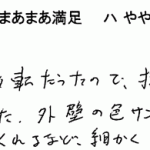 まあまあ満足 ハ やや
転だったので、
た。外壁の色サン
くれるなど、細かく